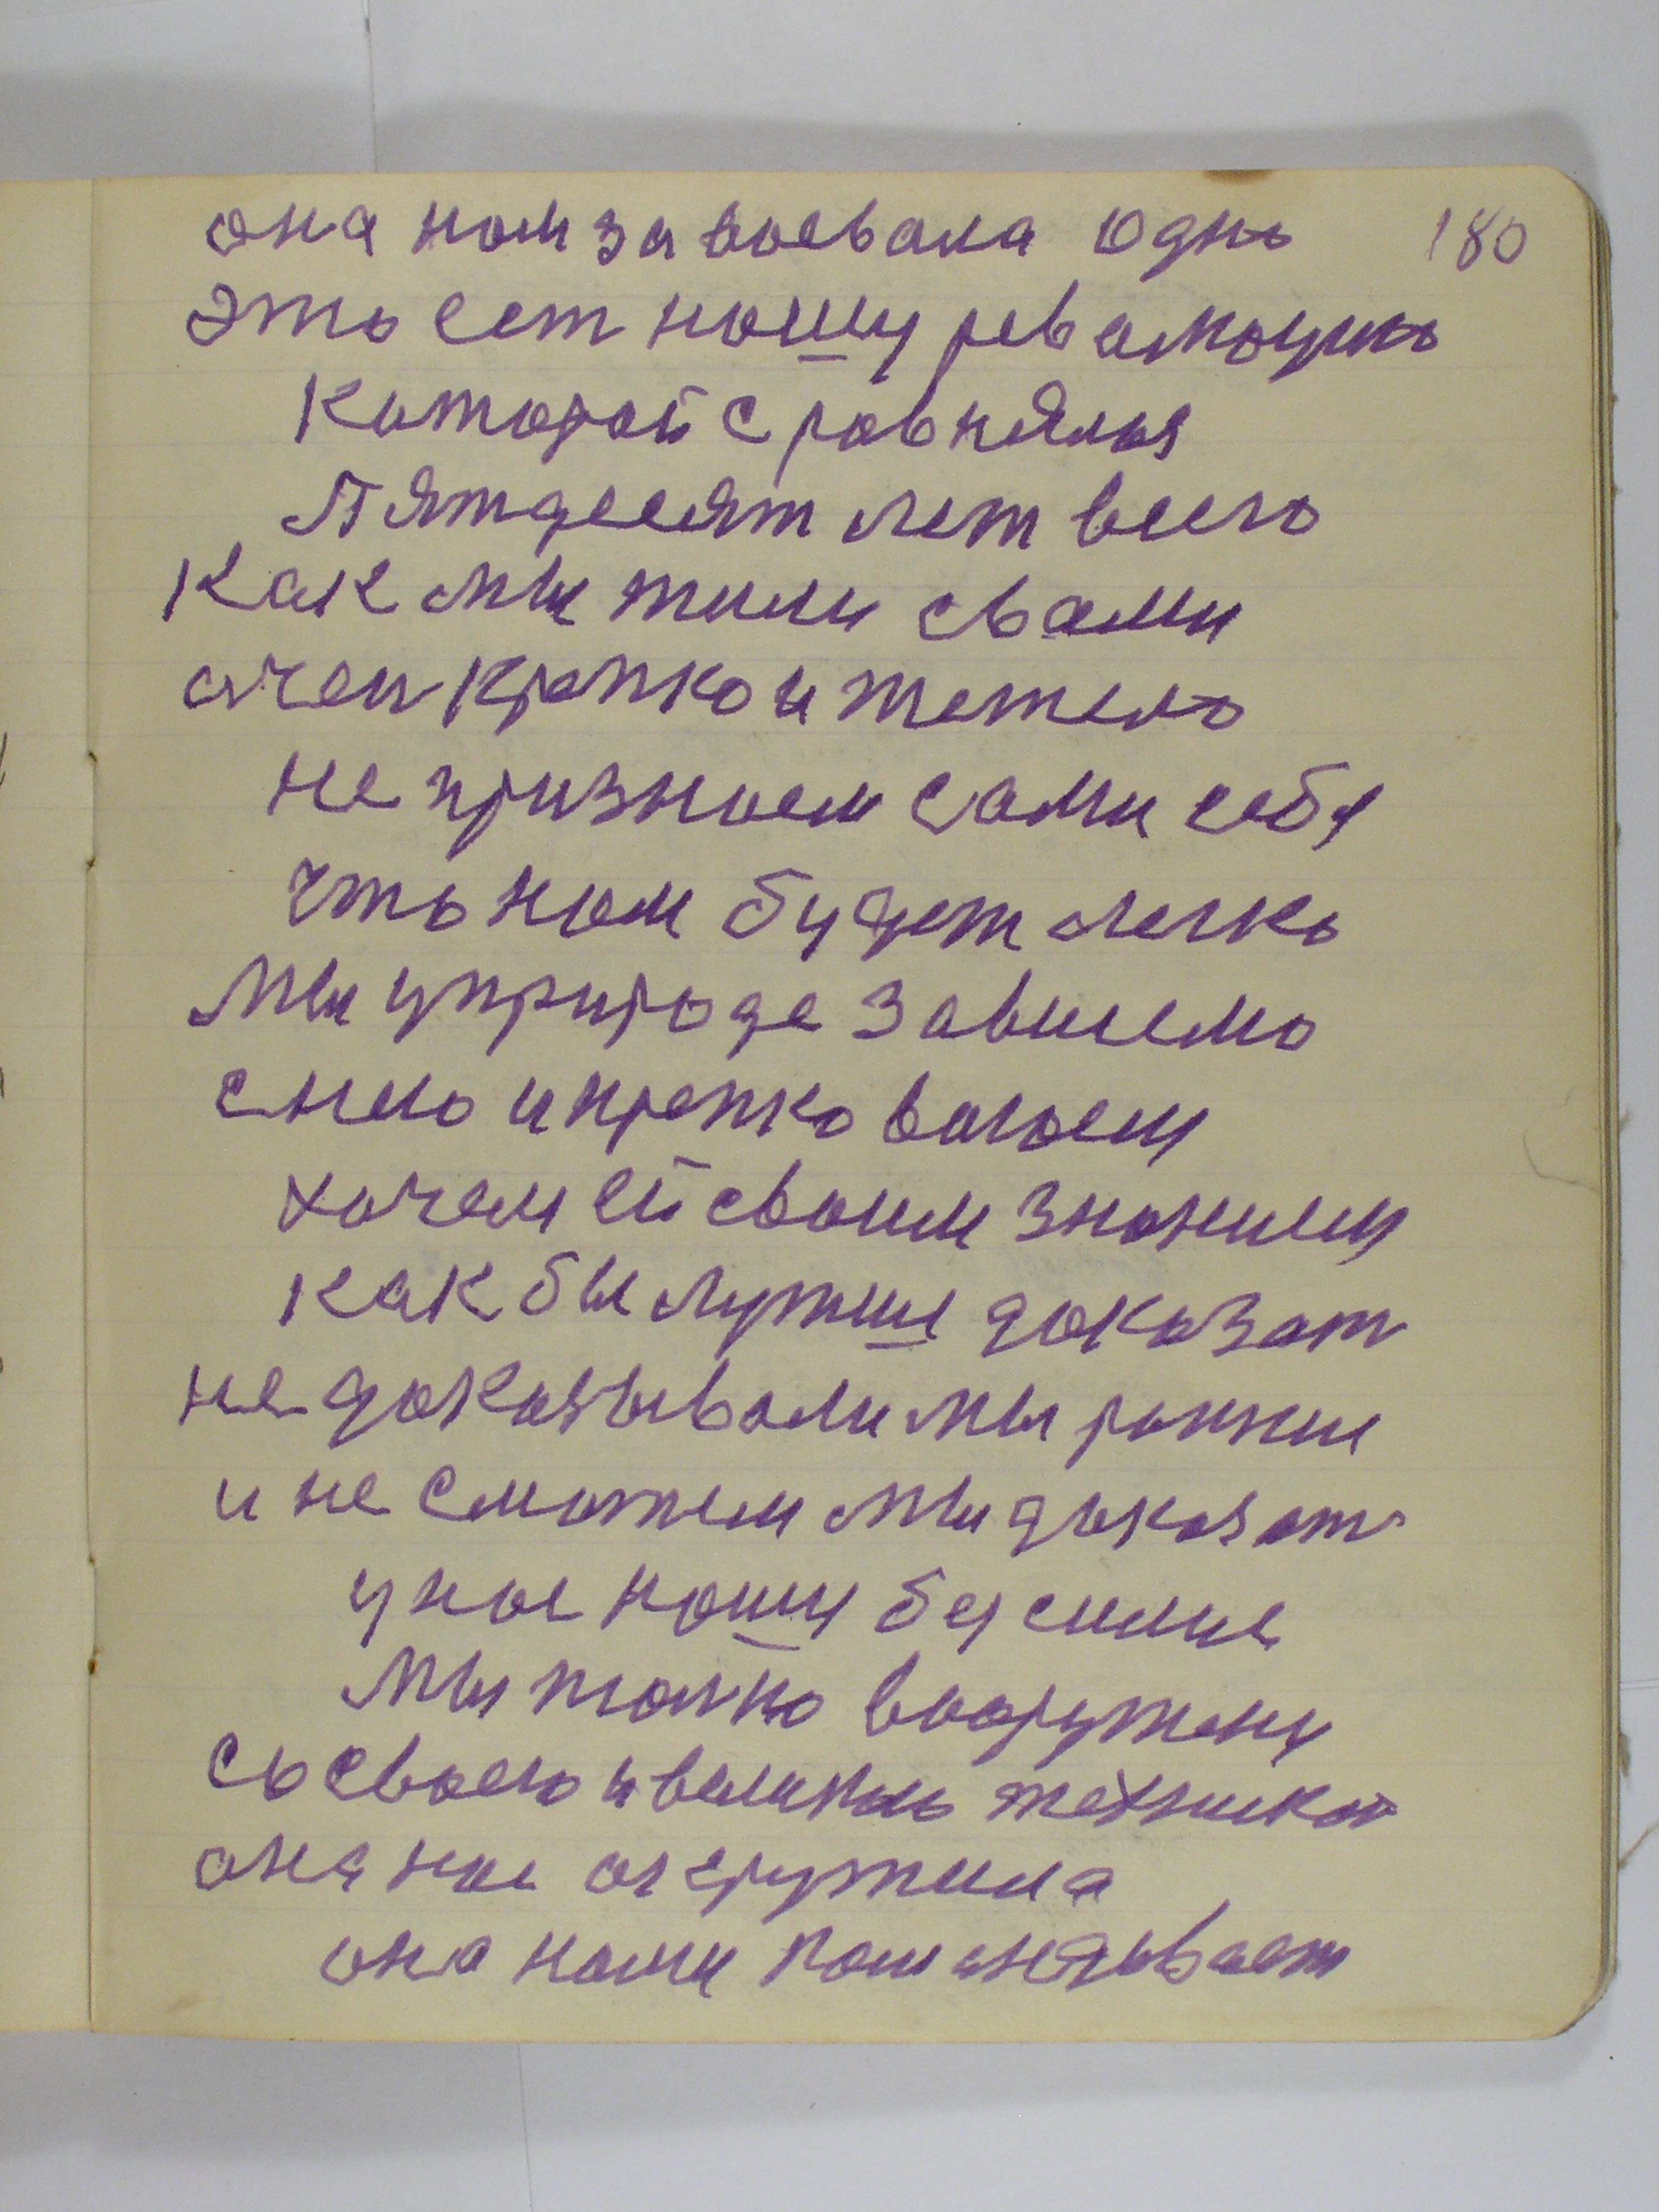 она нам завоевала одно 180
это ест нашу революцию
каторой сровнялыя
Пятдесят лет всего
Как мы жили свами
очен крепко и тежело
не признаем сами себя
что нам будет легко
Мы уприроде зависемо
снею и крепко воюем
хочем ей своим знанием
как бы лутше доказат
не доказывали мы ранше
и не сможем мы доказат
у нас наши бесилие
Мы только вооружены
сосвоею и великою техникой
она нас окружила
она нами камандывает